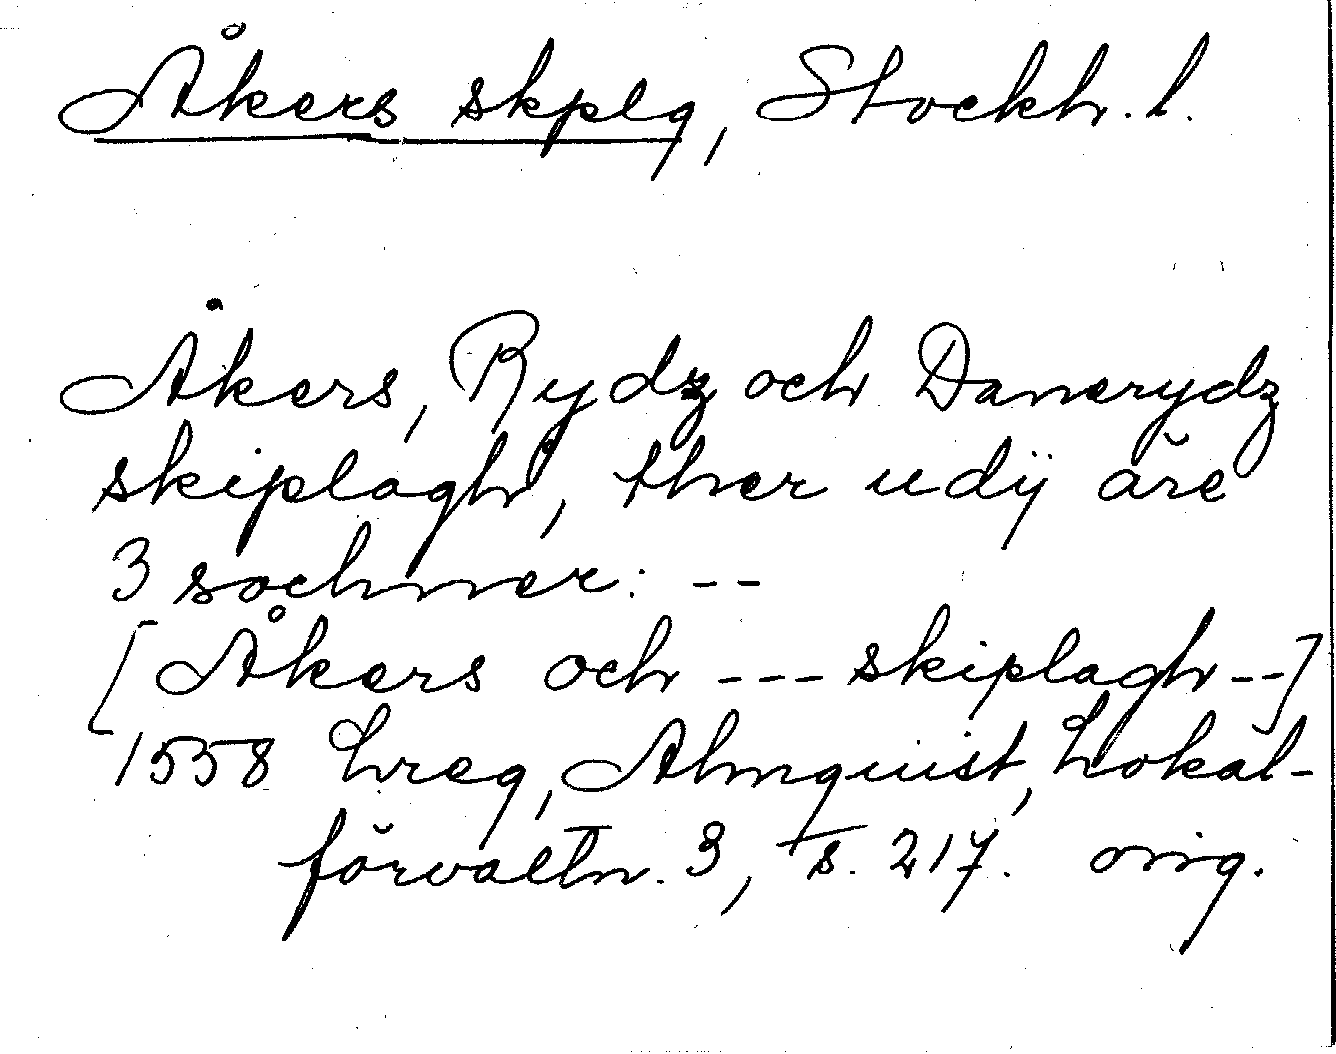 Åkers skplg, Stockh. l.
Åkers, Rydz och Danerydz
skiplagh, ther udÿ äre
3 sochner: --
[Åkers och --- skiplagh --]
1558 hreg, Almquist, Lokal-
förvaltn. 3, s. 217. orig.